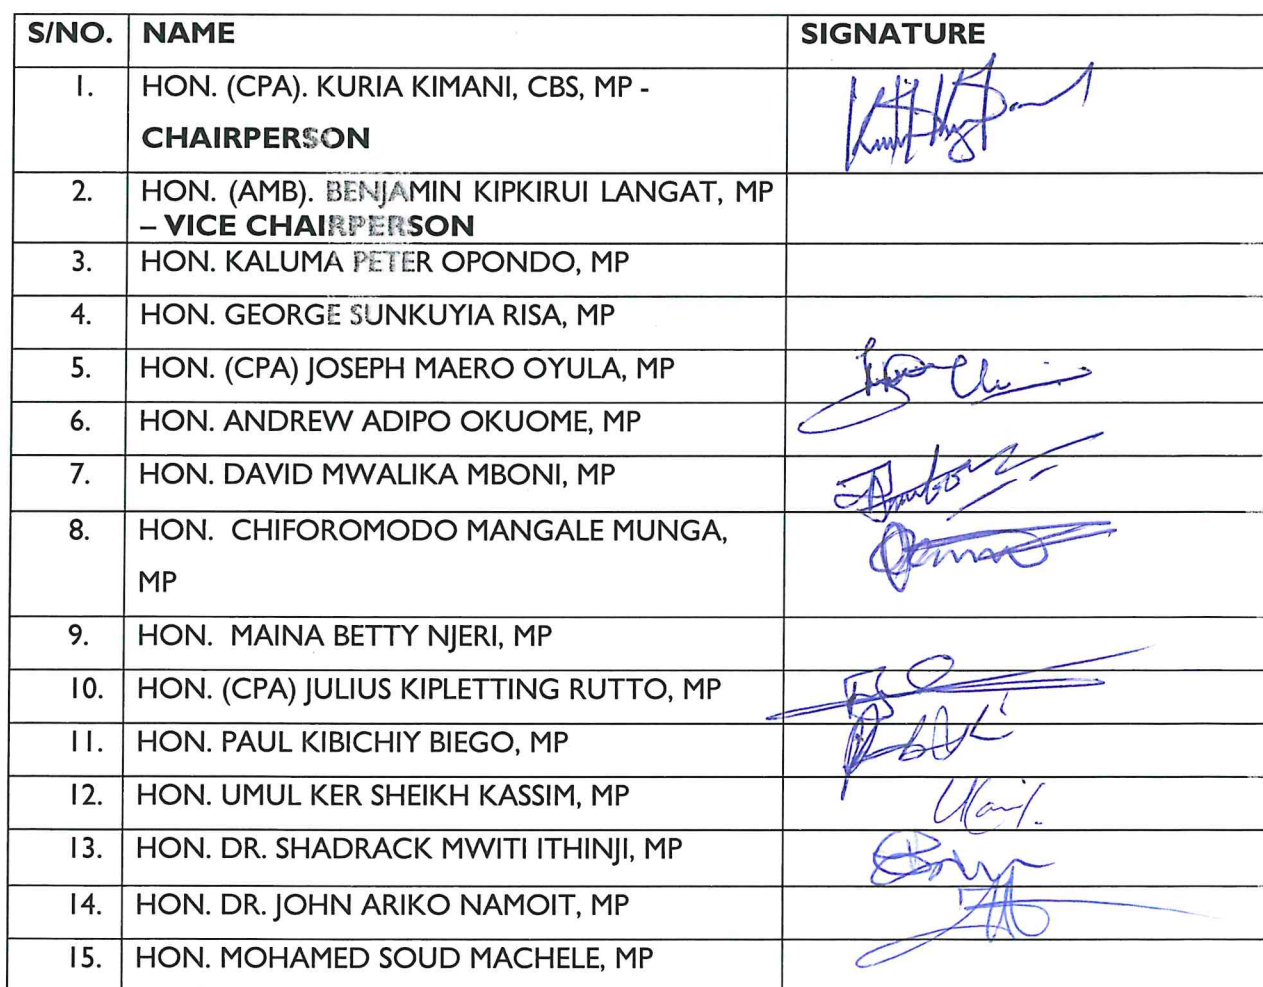 S/NO. NAME SIGNATURE
1. HON. (CPA). KURIA KIMANI, CBS, MP -
CHAIRPERSON
2. HON. (AMB). BENJAMIN KIPKIRUI LANGAT, MP
– VICE CHAIRPERSON
3. HON. KALUMA PETER OPONDO, MP
4. HON. GEORGE SUNKUYIA RISA, MP
5. HON. (CPA) JOSEPH MAERO OYULA, MP
6. HON. ANDREW ADIPO OKUOME, MP
7. HON. DAVID MWALIKA MBONI, MP
8. HON. CHIFOROMODO MANGALE MUNGA,
MP
9. HON. MAINA BETTY NJERI, MP
10. HON. (CPA) JULIUS KIPLETTING RUTTO, MP
11. HON. PAUL KIBICHIY BIEGO, MP
12. HON. UMUL KER SHEIKH KASSIM, MP
13. HON. DR. SHADRACK MWITI ITHINJI, MP
14. HON. DR. JOHN ARIKO NAMOIT, MP
15. HON. MOHAMED SOUD MACHELE, MP